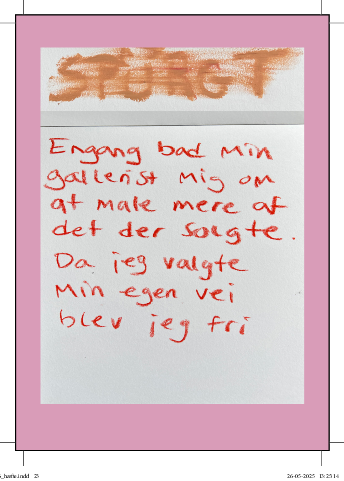 SPURGT
Engang bad min
gallerist mig om
at male mere af
det der solgte.
Da jeg valgte
min egen vei
blev jeg fri
26-05-2025 13:25:14